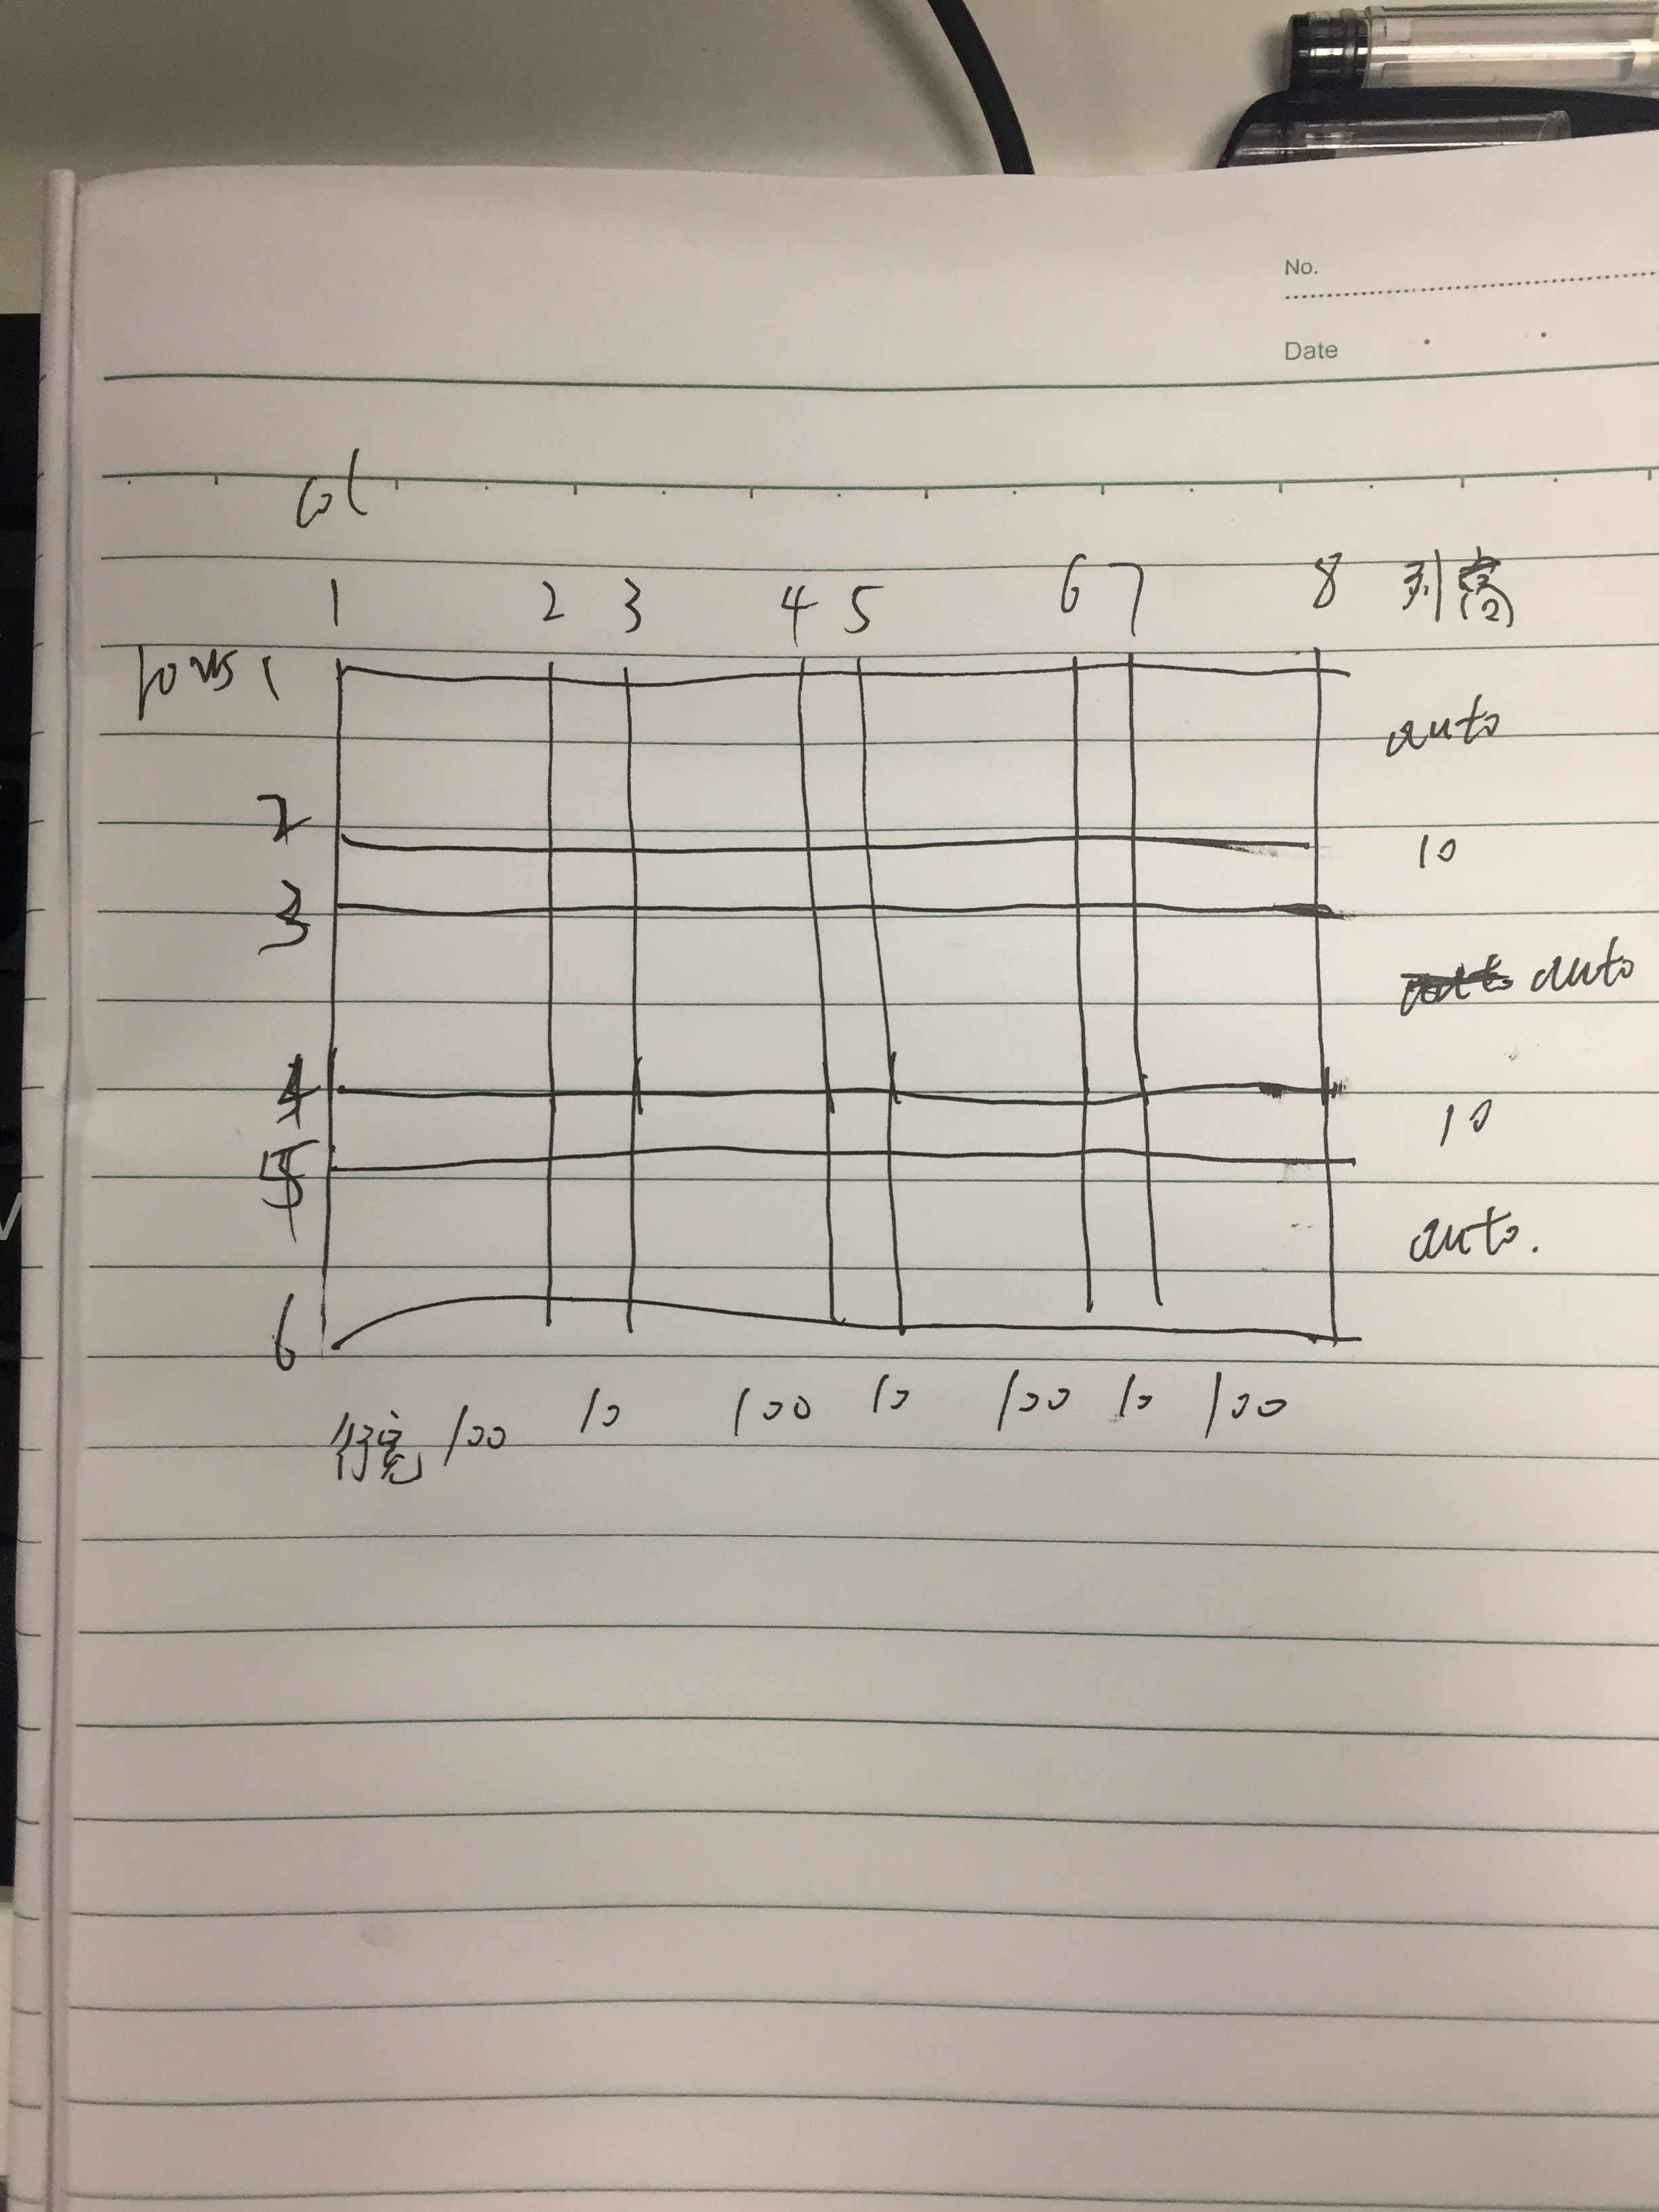 No.
Date
col
1 2 3 4 5 6 7 8 列高
rows 1
auto
2
10
3
auto
4
10
5
auto.
6
行宽 100 10 100 10 100 10 100